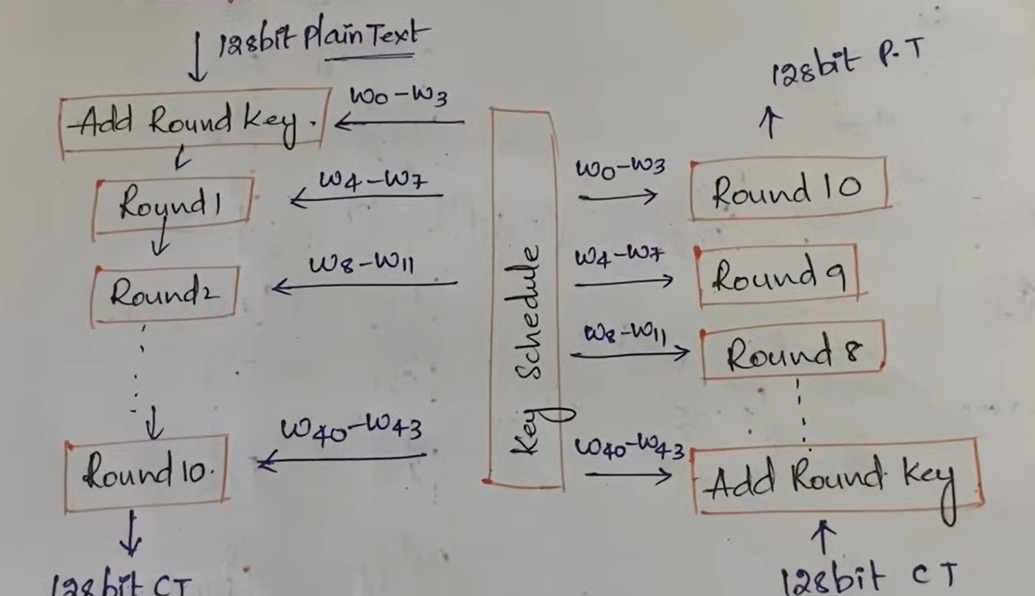 128bit Plain Text
Add Round Key.
W0-W3
Round 1
W4-W7
Round2
W8-W11
Round 10.
W40-W43
128bit CT
Key Schedule
128bit P.T
W0-W3
Round 10
W4-W7
Round 9
W8-W11
Round 8
W40-W43
Add Round Key
128bit CT